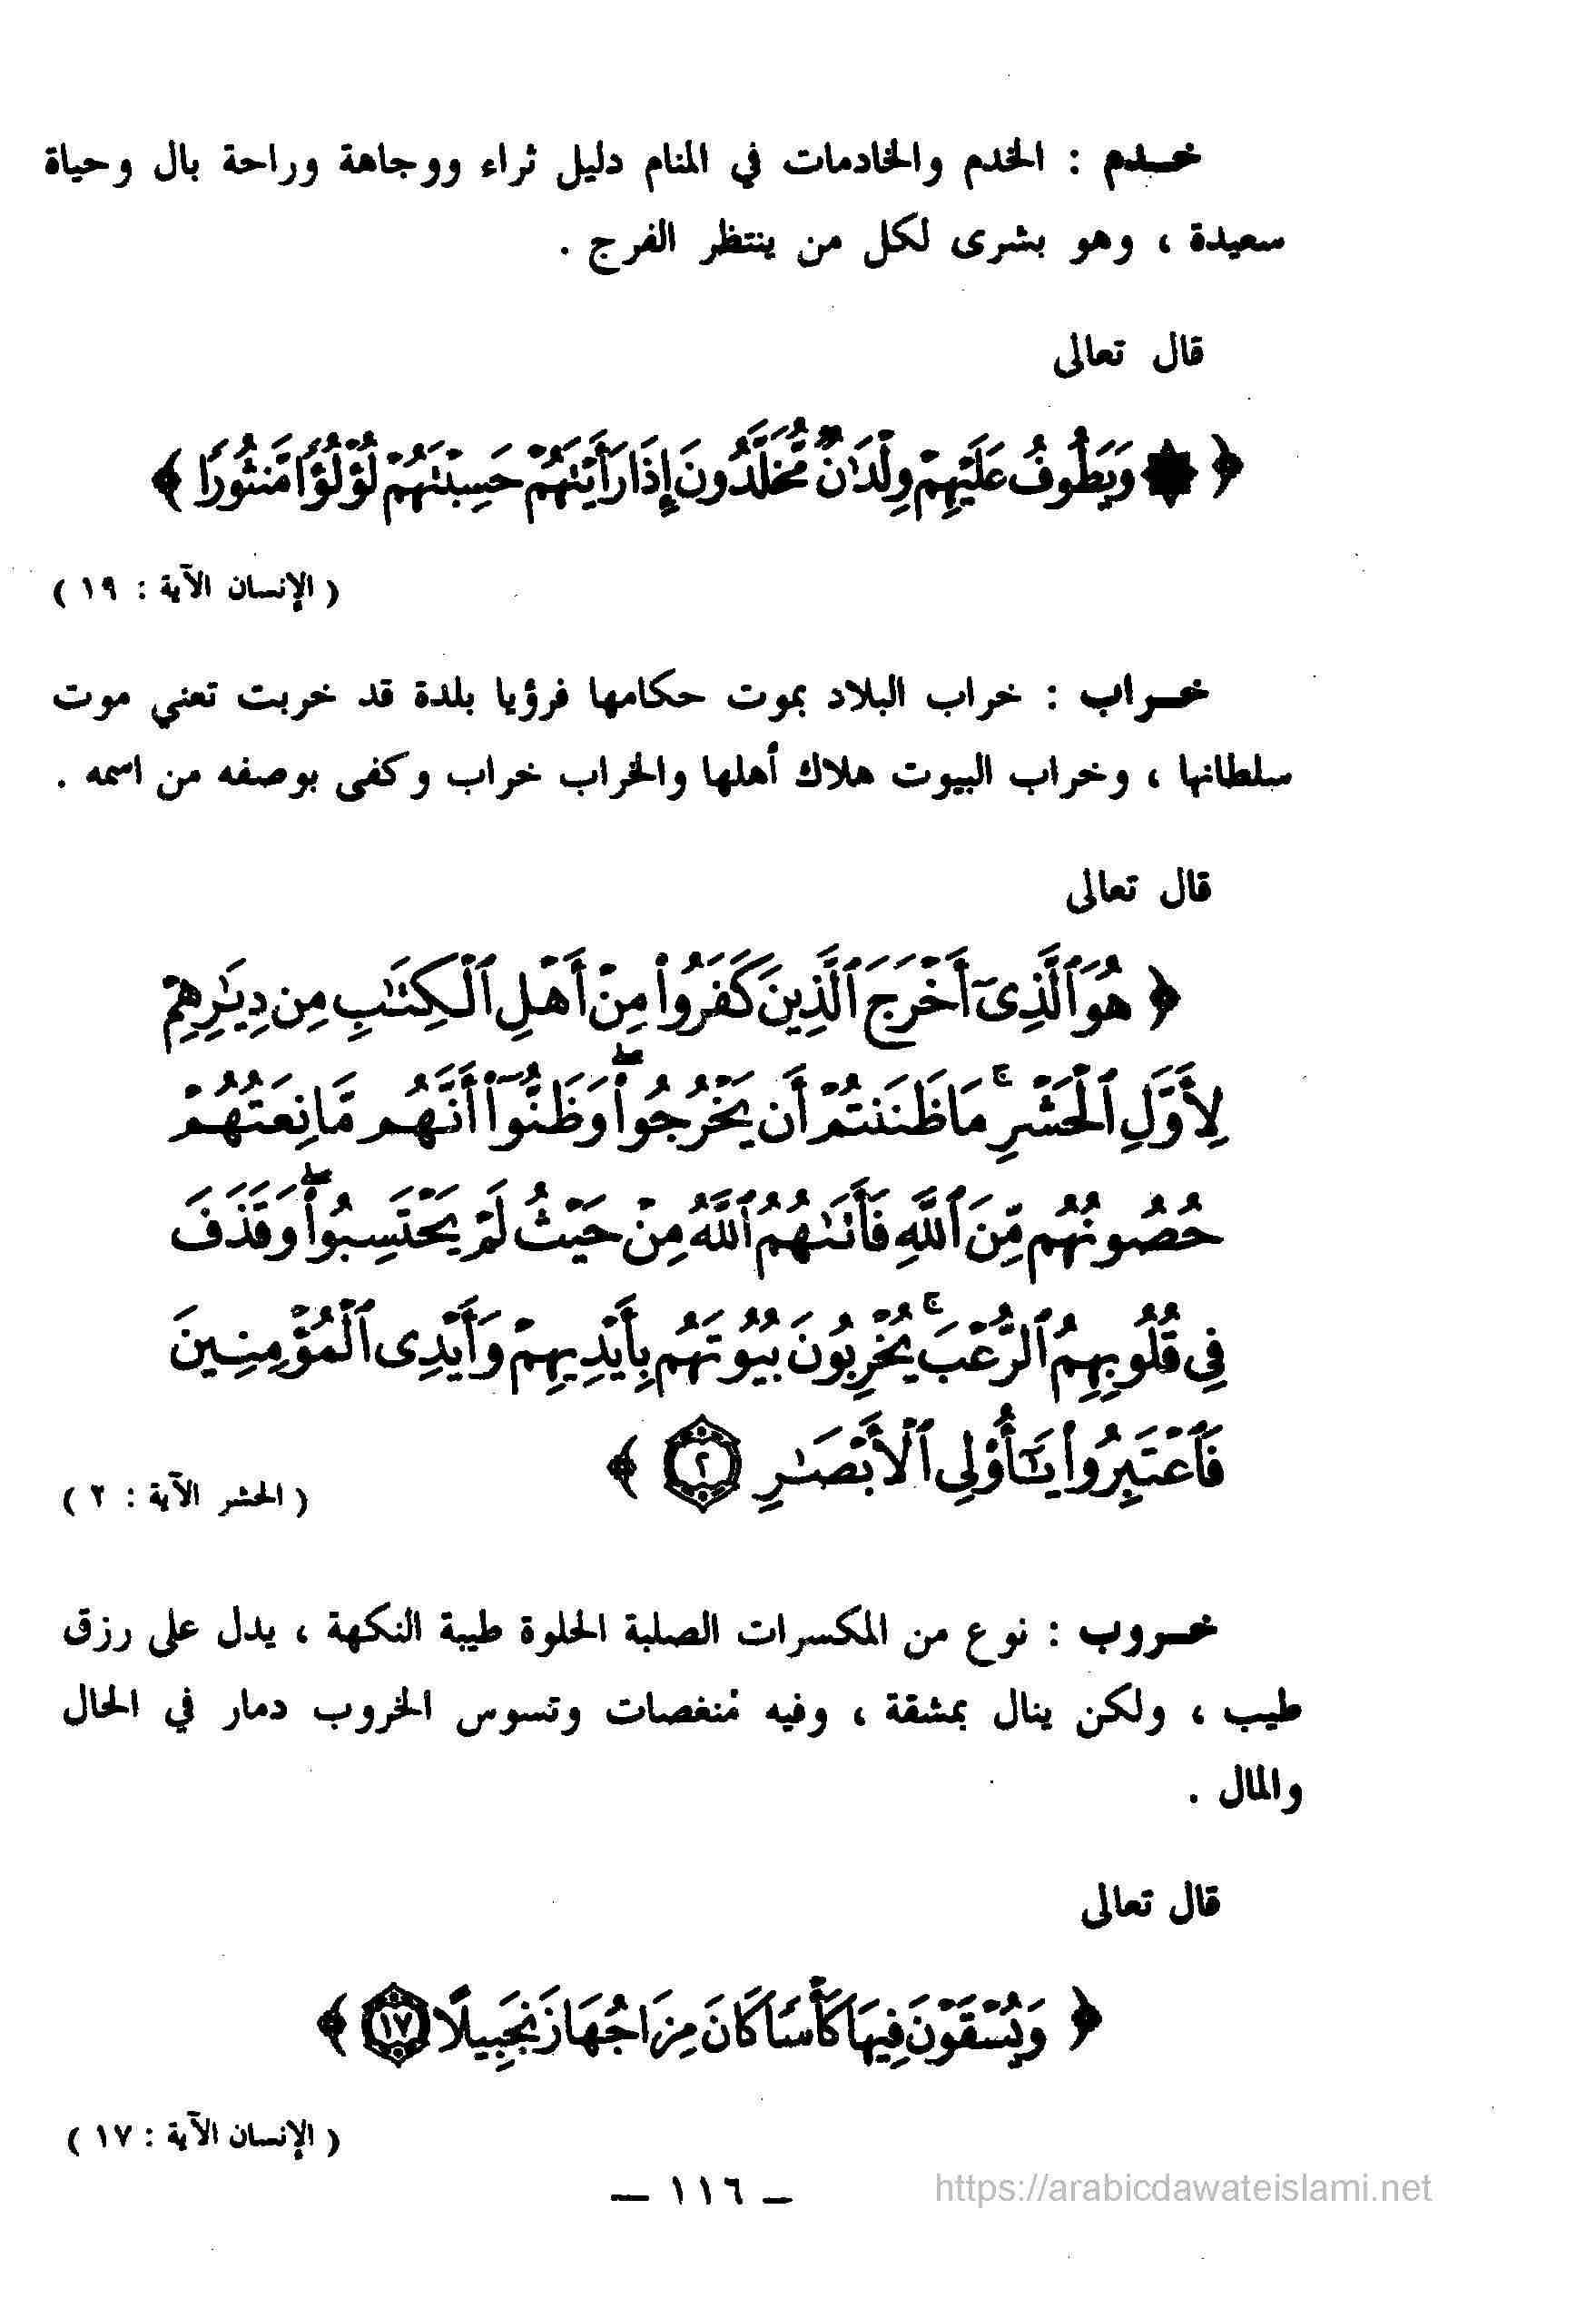 خـدم : الخدم والخادمات في المنام دليل ثراء ووجاهة وراحة بال وحياة
سعيدة ، وهو بشرى لكل من ينتظر الفرج .
قال تعالى
﴿ ۞ وَيَطُوفُ عَلَيْهِمْ وِلْدَٰنٌ مُّخَلَّدُونَ إِذَا رَأَيْتَهُمْ حَسِبْتَهُمْ لُؤْلُؤًا مَّنثُورًا ﴾
( الإنسان الآية : ١٩ )
خـراب : خراب البلاد بموت حكامها فرؤيا بلدة قد خربت تعني موت
سلطانها ، وخراب البيوت هلاك أهلها والخراب خراب وكفى بوصفه من اسمه .
قال تعالى
﴿ هُوَ ٱلَّذِىٓ أَخْرَجَ ٱلَّذِينَ كَفَرُوا۟ مِنْ أَهْلِ ٱلْكِتَٰبِ مِن دِيَٰرِهِمْ
لِأَوَّلِ ٱلْحَشْرِ ۚ مَا ظَنَنتُمْ أَن يَخْرُجُوا۟ ۖ وَظَنُّوٓا۟ أَنَّهُم مَّانِعَتُهُمْ
حُصُونُهُم مِّنَ ٱللَّهِ فَأَتَىٰهُمُ ٱللَّهُ مِنْ حَيْثُ لَمْ يَحْتَسِبُوا۟ ۖ وَقَذَفَ
فِى قُلُوبِهِمُ ٱلرُّعْبَ ۚ يُخْرِبُونَ بُيُوتَهُم بِأَيْدِيهِمْ وَأَيْدِى ٱلْمُؤْمِنِينَ
فَٱعْتَبِرُوا۟ يَٰٓأُو۟لِى ٱلْأَبْصَٰرِ ٢ ﴾
( الحشر الآية : ٢ )
خـروب : نوع من المكسرات الصلبة الحلوة طيبة النكهة ، يدل على رزق
طيب ، ولكن ينال بمشقة ، وفيه مُنغصات وتسوس الخروب دمار في الحال
والمال .
قال تعالى
﴿ وَيُسْقَوْنَ فِيهَا كَأْسًا كَانَ مِزَاجُهَا زَنجَبِيلًا ١٧ ﴾
( الإنسان الآية : ١٧ )
ـ ١١٦ ـ
https://arabicdawateislami.net